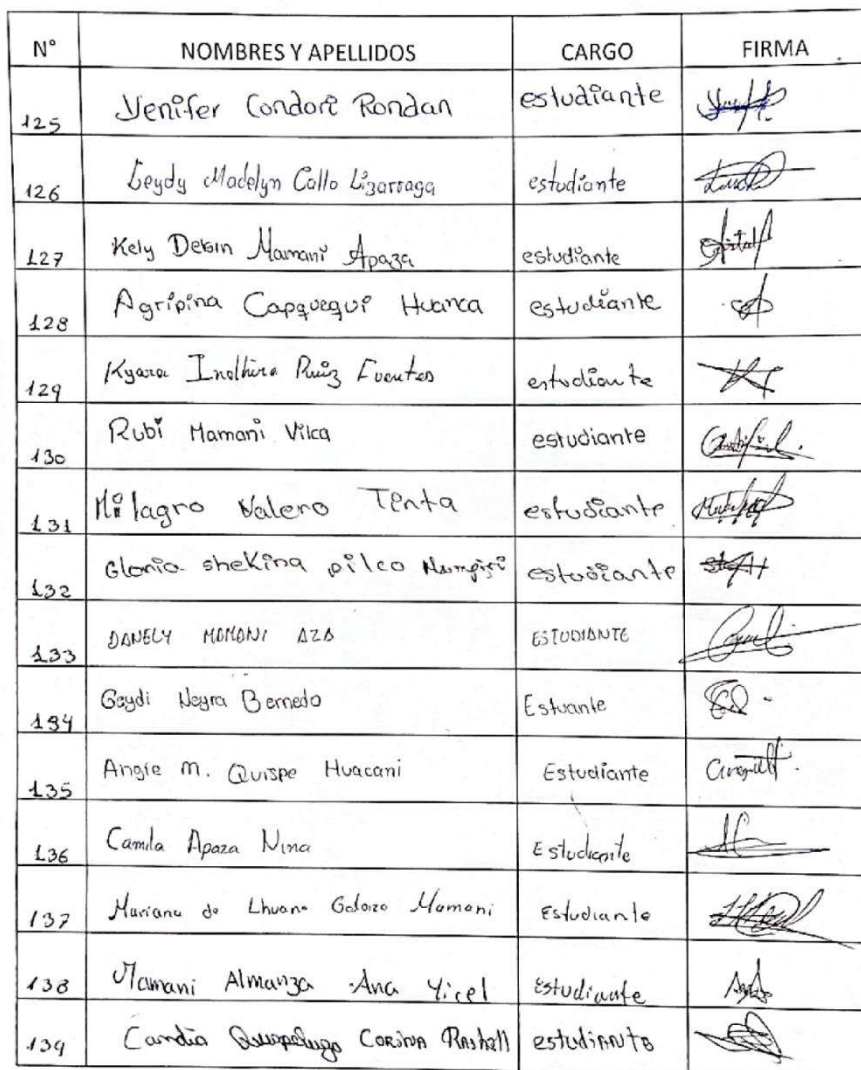 N° NOMBRES Y APELLIDOS CARGO FIRMA
125 Yenifer Condori Rondan estudiante
126 Leydy Madelyn Callo Lizarraga estudiante
127 Kely Mamani Apaza estudiante
128 Agripina Capquequi Huanca estudiante
129 Kyara Ruiz Fuentes estudiante
130 Rubi Mamani Vilca estudiante
131 Milagro Valero Tinta estudiante
132 Gloria shekina pilco estudiante
133 DANELY MAMANI AZA ESTUDIANTE
134 Geydi Neyra Bernedo Estuante
135 Angie M. Quispe Huacani Estudiante
136 Camila Apaza Nina Estudiante
137 Mariana de Mamani Estudiante
138 Mamani Almanza Ana Yicel Estudiante
139 Candia CORINA Rashell estudiANTE